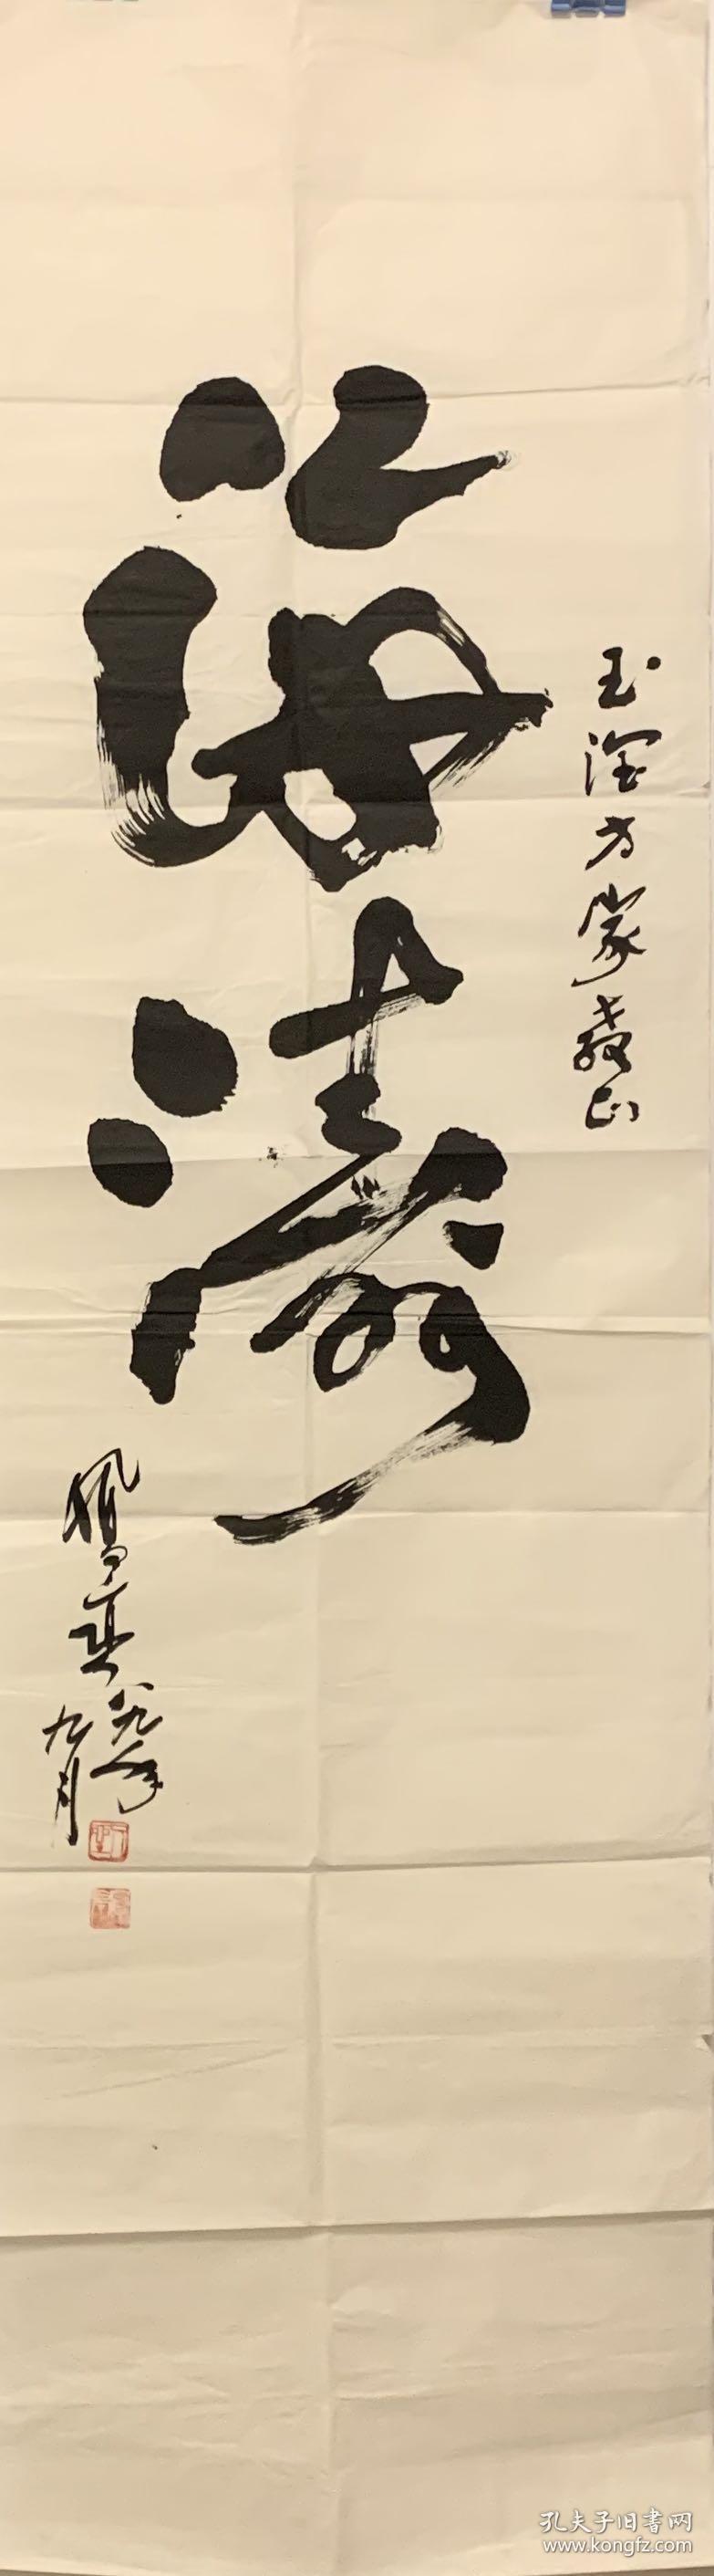 海涛
玉深方家教正
八九年
九月
孔夫子旧書网
www.kongfz.com